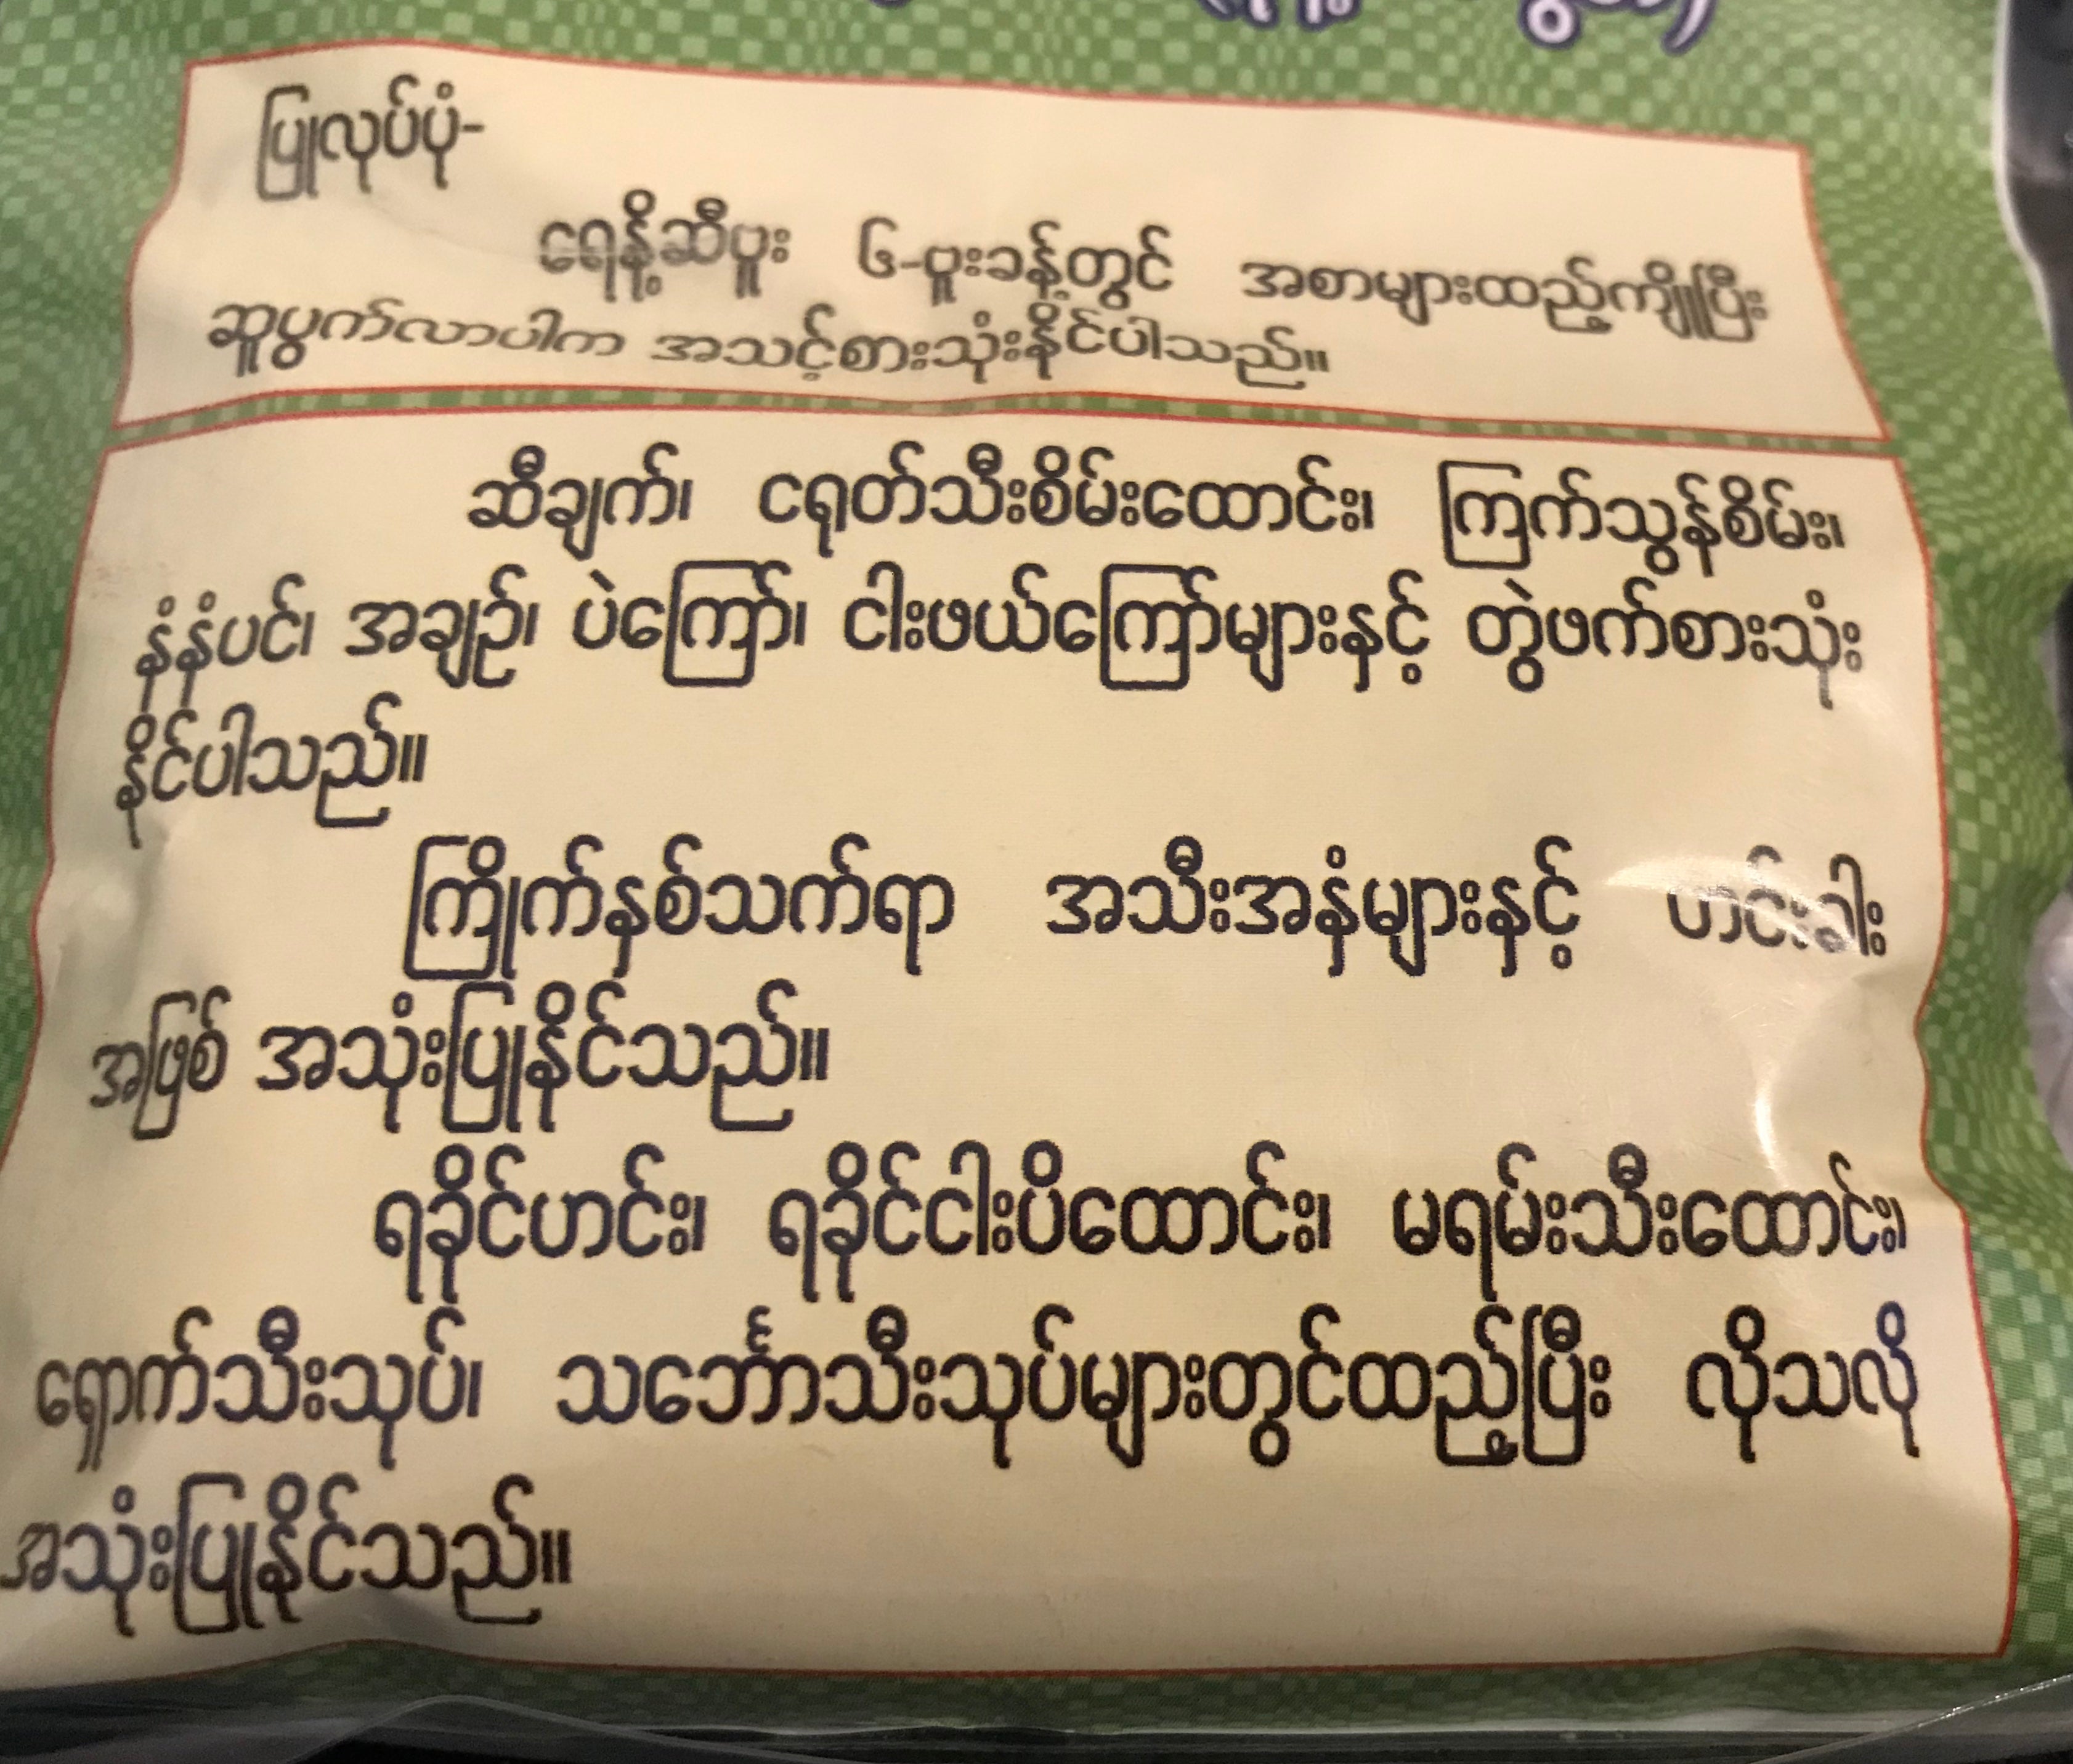 ပြုလုပ်ပုံ-
ရေနို့ဆီဗူး ၆-ဗူးခန့်တွင် အစာများထည့်ကျိုပြီး
ဆူပွက်လာပါက အသင့်စားသုံးနိုင်ပါသည်။
ဆီချက်၊ ငရုတ်သီးစိမ်းထောင်း၊ ကြက်သွန်စိမ်း၊
နံနံပင်၊ အချဉ်၊ ပဲကြော်၊ ငါးဖယ်ကြော်များနှင့် တွဲဖက်စားသုံး
နိုင်ပါသည်။
ကြိုက်နှစ်သက်ရာ အသီးအနှံများနှင့် ဟင်းခါး
အဖြစ် အသုံးပြုနိုင်သည်။
ရခိုင်ဟင်း၊ ရခိုင်ငါးပိထောင်း၊ မရမ်းသီးထောင်း၊
ရှောက်သီးသုပ်၊ သင်္ဘောသီးသုပ်များတွင်ထည့်ပြီး လိုသလို
အသုံးပြုနိုင်သည်။